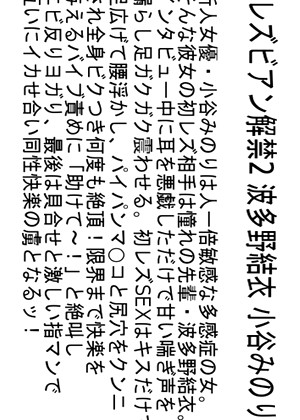 レズビアン解禁2 波多野結衣 小谷みのり
新人女優・小谷みのりは人一倍敏感な多感症の女。
そんな彼女の初レズ相手は憧れの先輩・波多野結衣。
インタビュー中に耳を悪戯しただけで甘い喘ぎ声を
漏らし足ガクガク震わせる。初レズSEXはキスだけで
足広げて腰浮かし、パイパンマ○コと尻穴をクンニ
され全身ビクつき何度も絶頂！限界まで快楽を
与えるバイブ責めに「助けて～！」と絶叫し
エビ反りヨガり、最後は貝合せと激しい指マンで
互いにイカせ合い同性快楽の虜となるッ！